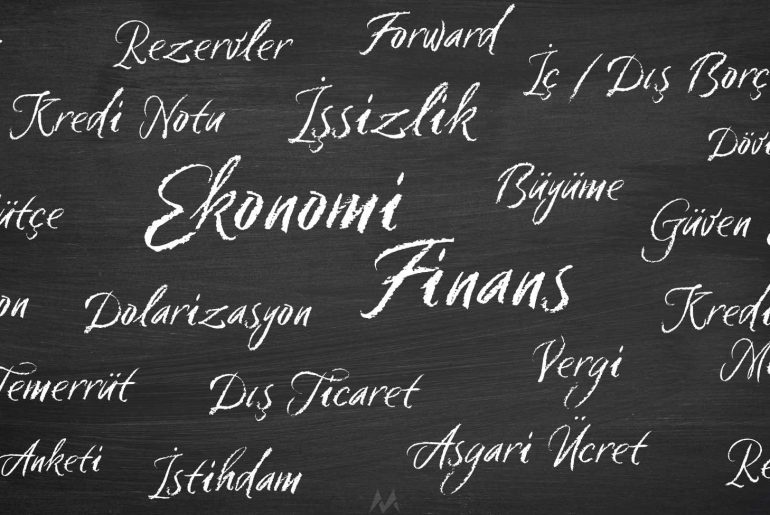 Rezervler
Forward
İç / Dış Borç
Kredi Notu
İşsizlik
Ekonomi
Büyüme
Güven
Finans
Dolarizasyon
Kredi
Vergi
Temerrüt
Dış Ticaret
Asgari Ücret
Anketi
İstihdam